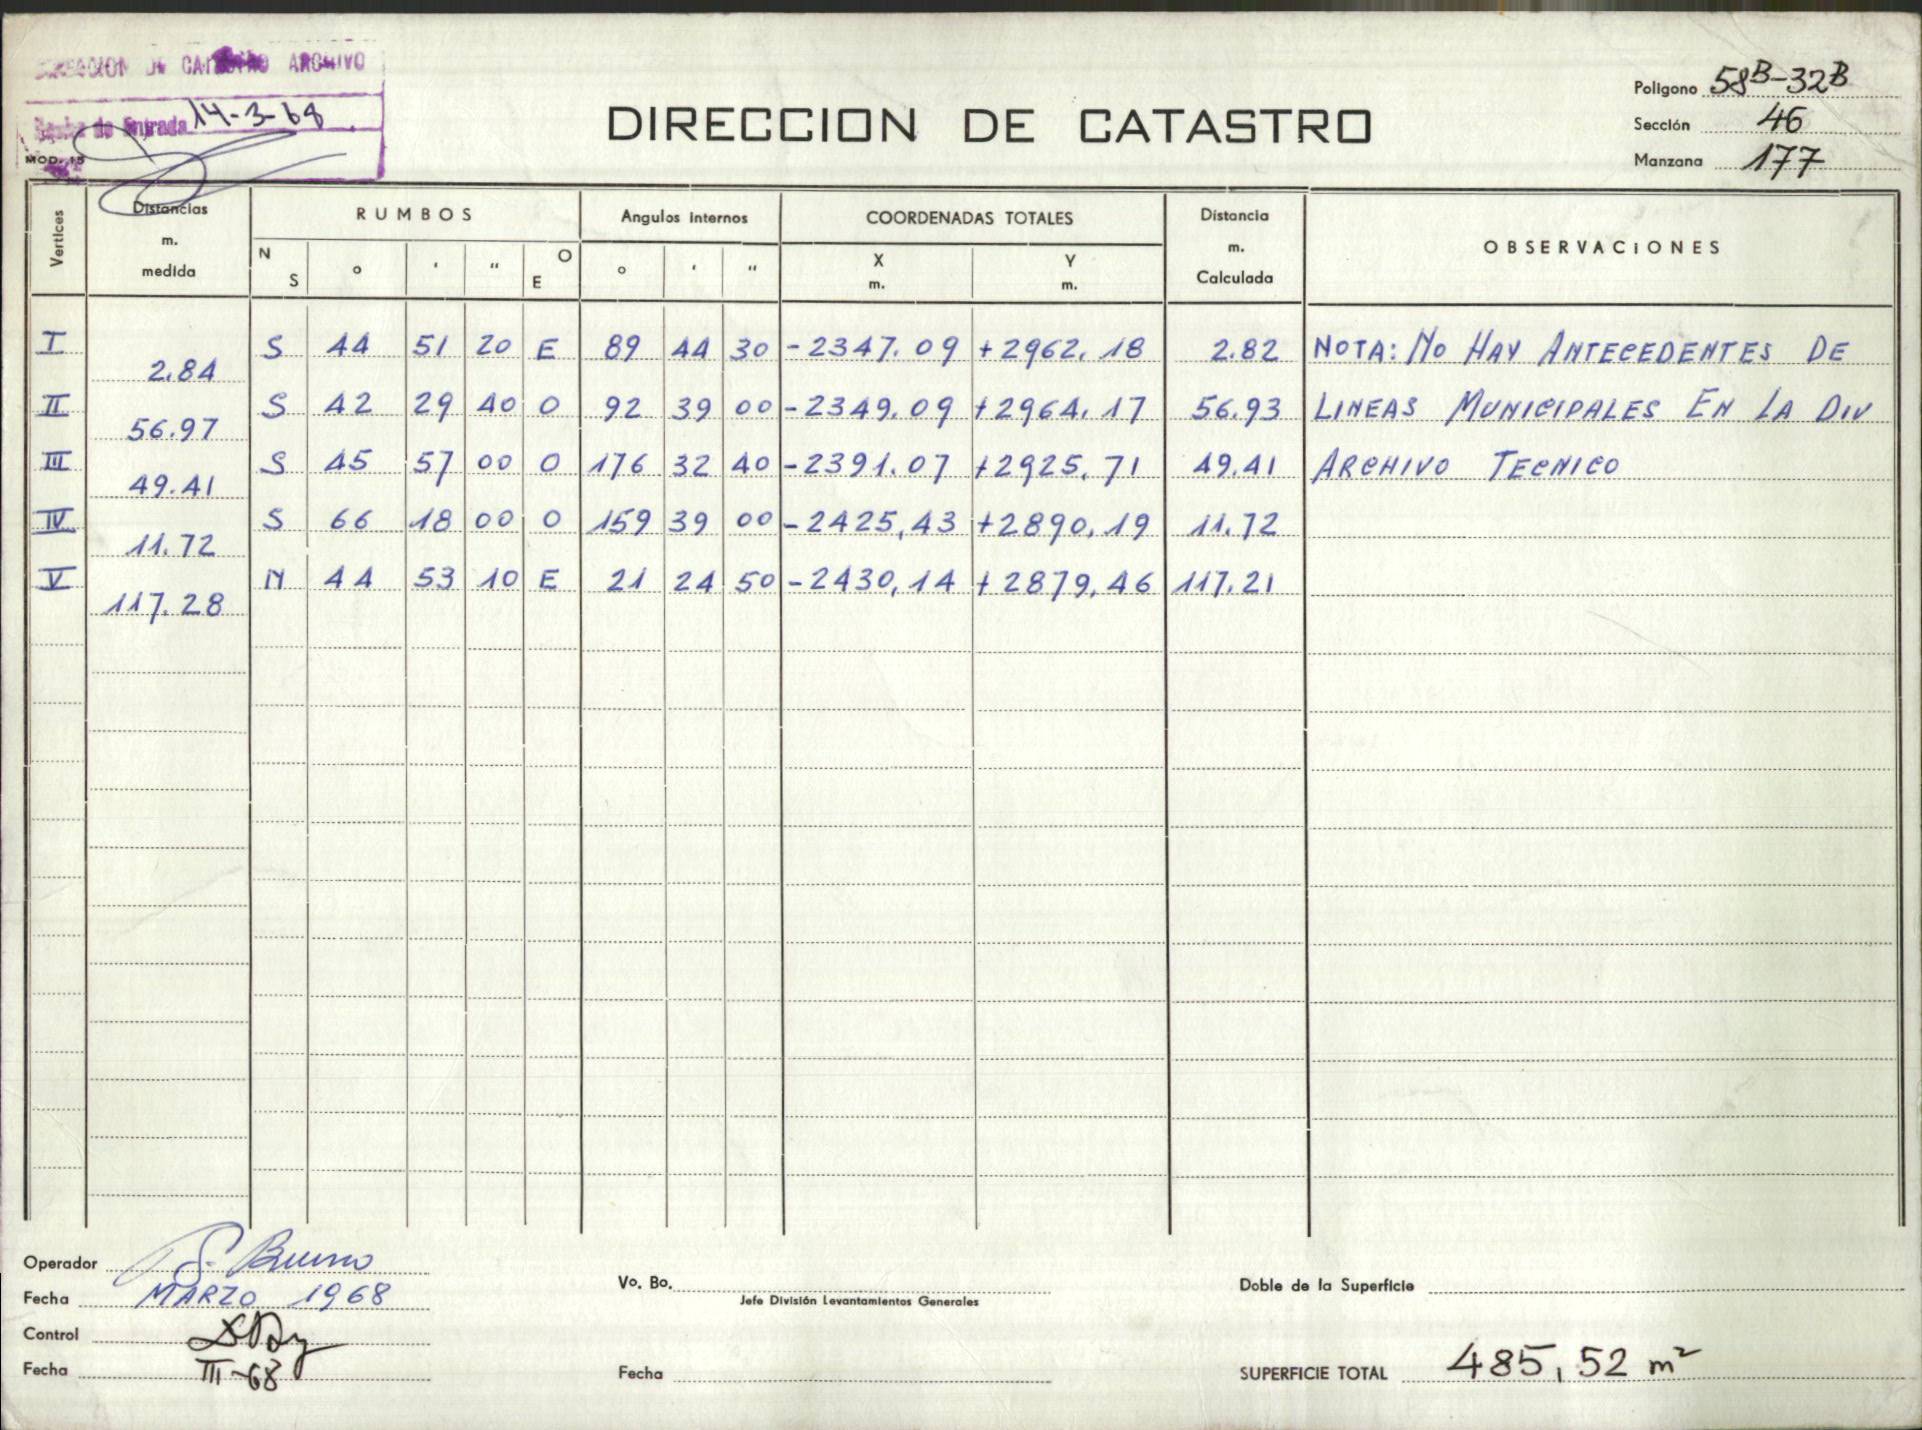 DIRECCION DE CATASTRO ARCHIVO
Fecha de Entrada 14-3-68
MOD. 15
DIRECCION DE CATASTRO
Poligono 58B-32B
Sección 46
Manzana 177
Vertices Distancias m. medida RUMBOS Angulos internos COORDENADAS TOTALES Distancia m. Calculada OBSERVACIONES
N S ° ' " O E ° ' " X m. Y m.
I 2.84 S 44 51 20 E 89 44 30 -2347.09 +2962.18 2.82 NOTA: NO HAY ANTECEDENTES DE
II 56.97 S 42 29 40 O 92 39 00 -2349.09 +2964.17 56.93 LINEAS MUNICIPALES EN LA DIV
III 49.41 S 45 57 00 O 176 32 40 -2391.07 +2925.71 49.41 ARCHIVO TECNICO
IV 11.72 S 66 18 00 O 159 39 00 -2425,43 +2890,19 11.72
V 117.28 N 44 53 10 E 21 24 50 -2430,14 +2879,46 117.21
Operador S. Bueno
Fecha MARZO 1968
Control
Fecha III-68
Vo. Bo.
Jefe División Levantamientos Generales
Fecha
Doble de la Superficie
SUPERFICIE TOTAL 485,52 m²